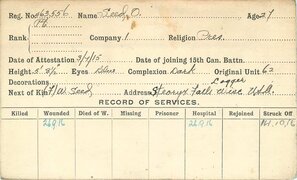 Reg. No. 463556 Name Leed, O. Age 27
Rank Pte Company 1 Religion Pres.
Date of Attestation 3/7/15 Date of joining 15th Can. Battn.
Height 5' 8½ Eyes Blue Complexion Dark Original Unit 62
Decorations Logger
Next of Kin Address Falls Wisc. U.S.A.
RECORD OF SERVICES.
Killed Wounded Died of W. Missing Prisoner Hospital Rejoined Struck Off
26.9.16 26.9.16